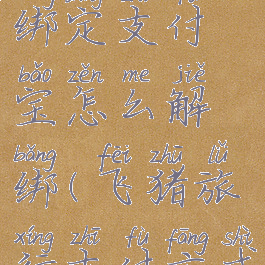 绑定支付
bǎo zěn me jiě
宝怎么解
bǎng fēi zhū lǚ
绑(飞猪旅
xíng zhī fù fāng shì